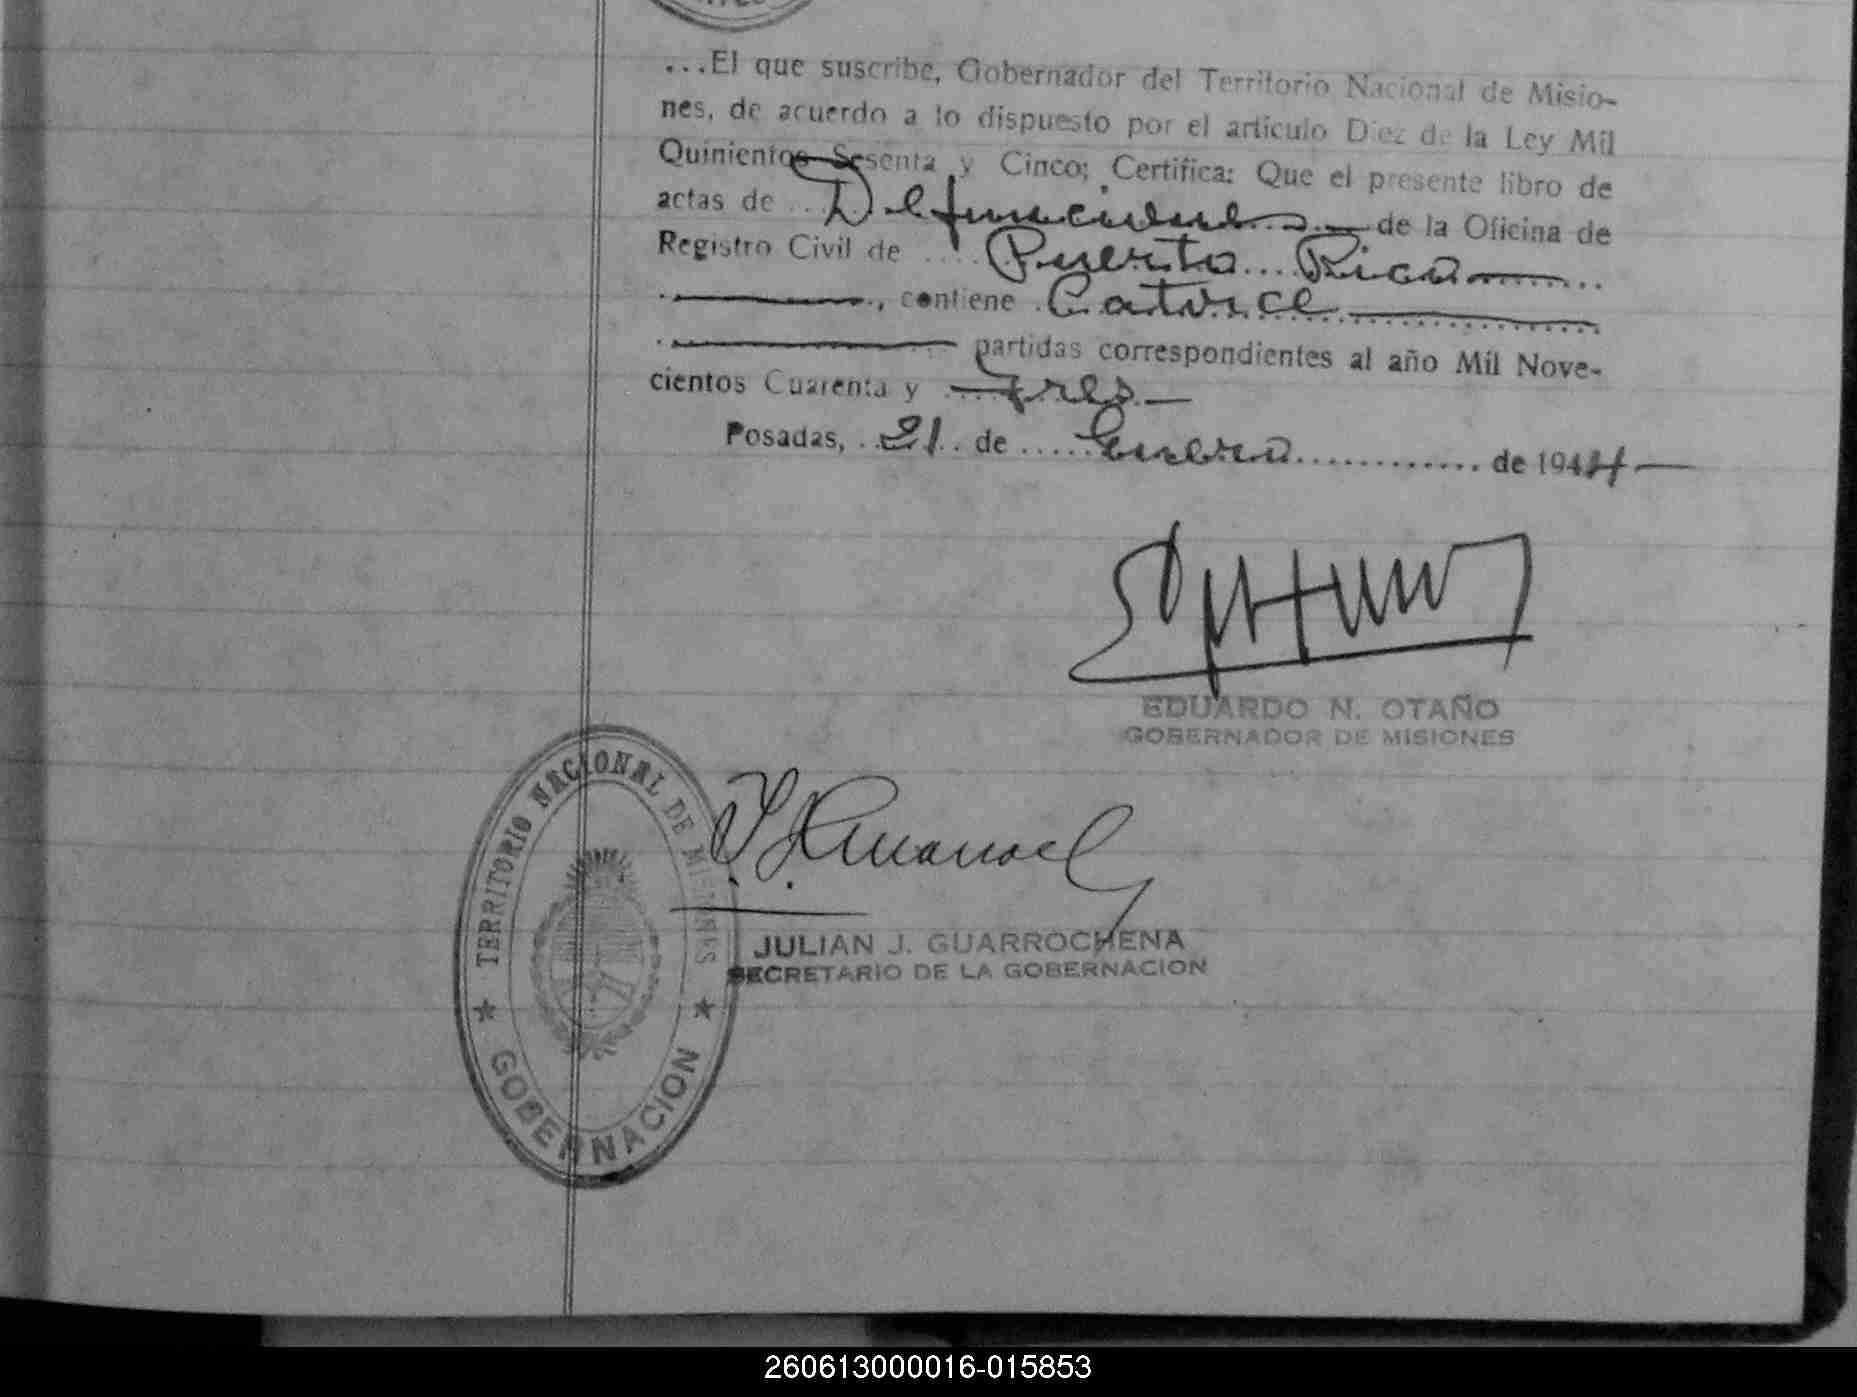 ...El que suscribe, Gobernador del Territorio Nacional de Misio-
nes, de acuerdo a lo dispuesto por el artículo Diez de la Ley Mil
Quinientos Sesenta y Cinco; Certifica: Que el presente libro de
actas de ..Defunciones.— de la Oficina de
Registro Civil de .... Puerto...Rico.......
., contiene .Catorce...........
partidas correspondientes al año Mil Nove-
cientos Cuarenta y ....Tres.—
Posadas, ..21.. de .....Enero............. de 1944—
EDUARDO N. OTAÑO
GOBERNADOR DE MISIONES
TERRITORIO NACIONAL DE MISIONES
JULIAN J. GUARROCHENA
SECRETARIO DE LA GOBERNACION
★ ★
GOBERNACION
260613000016-015853